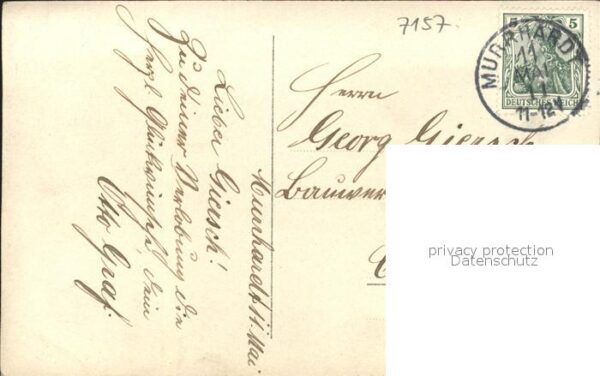 7157.
5 5
DEUTSCHES REICH
MURRHARDT
11
MAI
11
11-12
Murrhardt 11. Mai
Lieber Giersch!
Zu deiner Verlobung die
herzl. Glückwünsche, dein
Otto Graf.
Herrn
Georg Giersch
Bauwer
privacy protection
Datenschutz